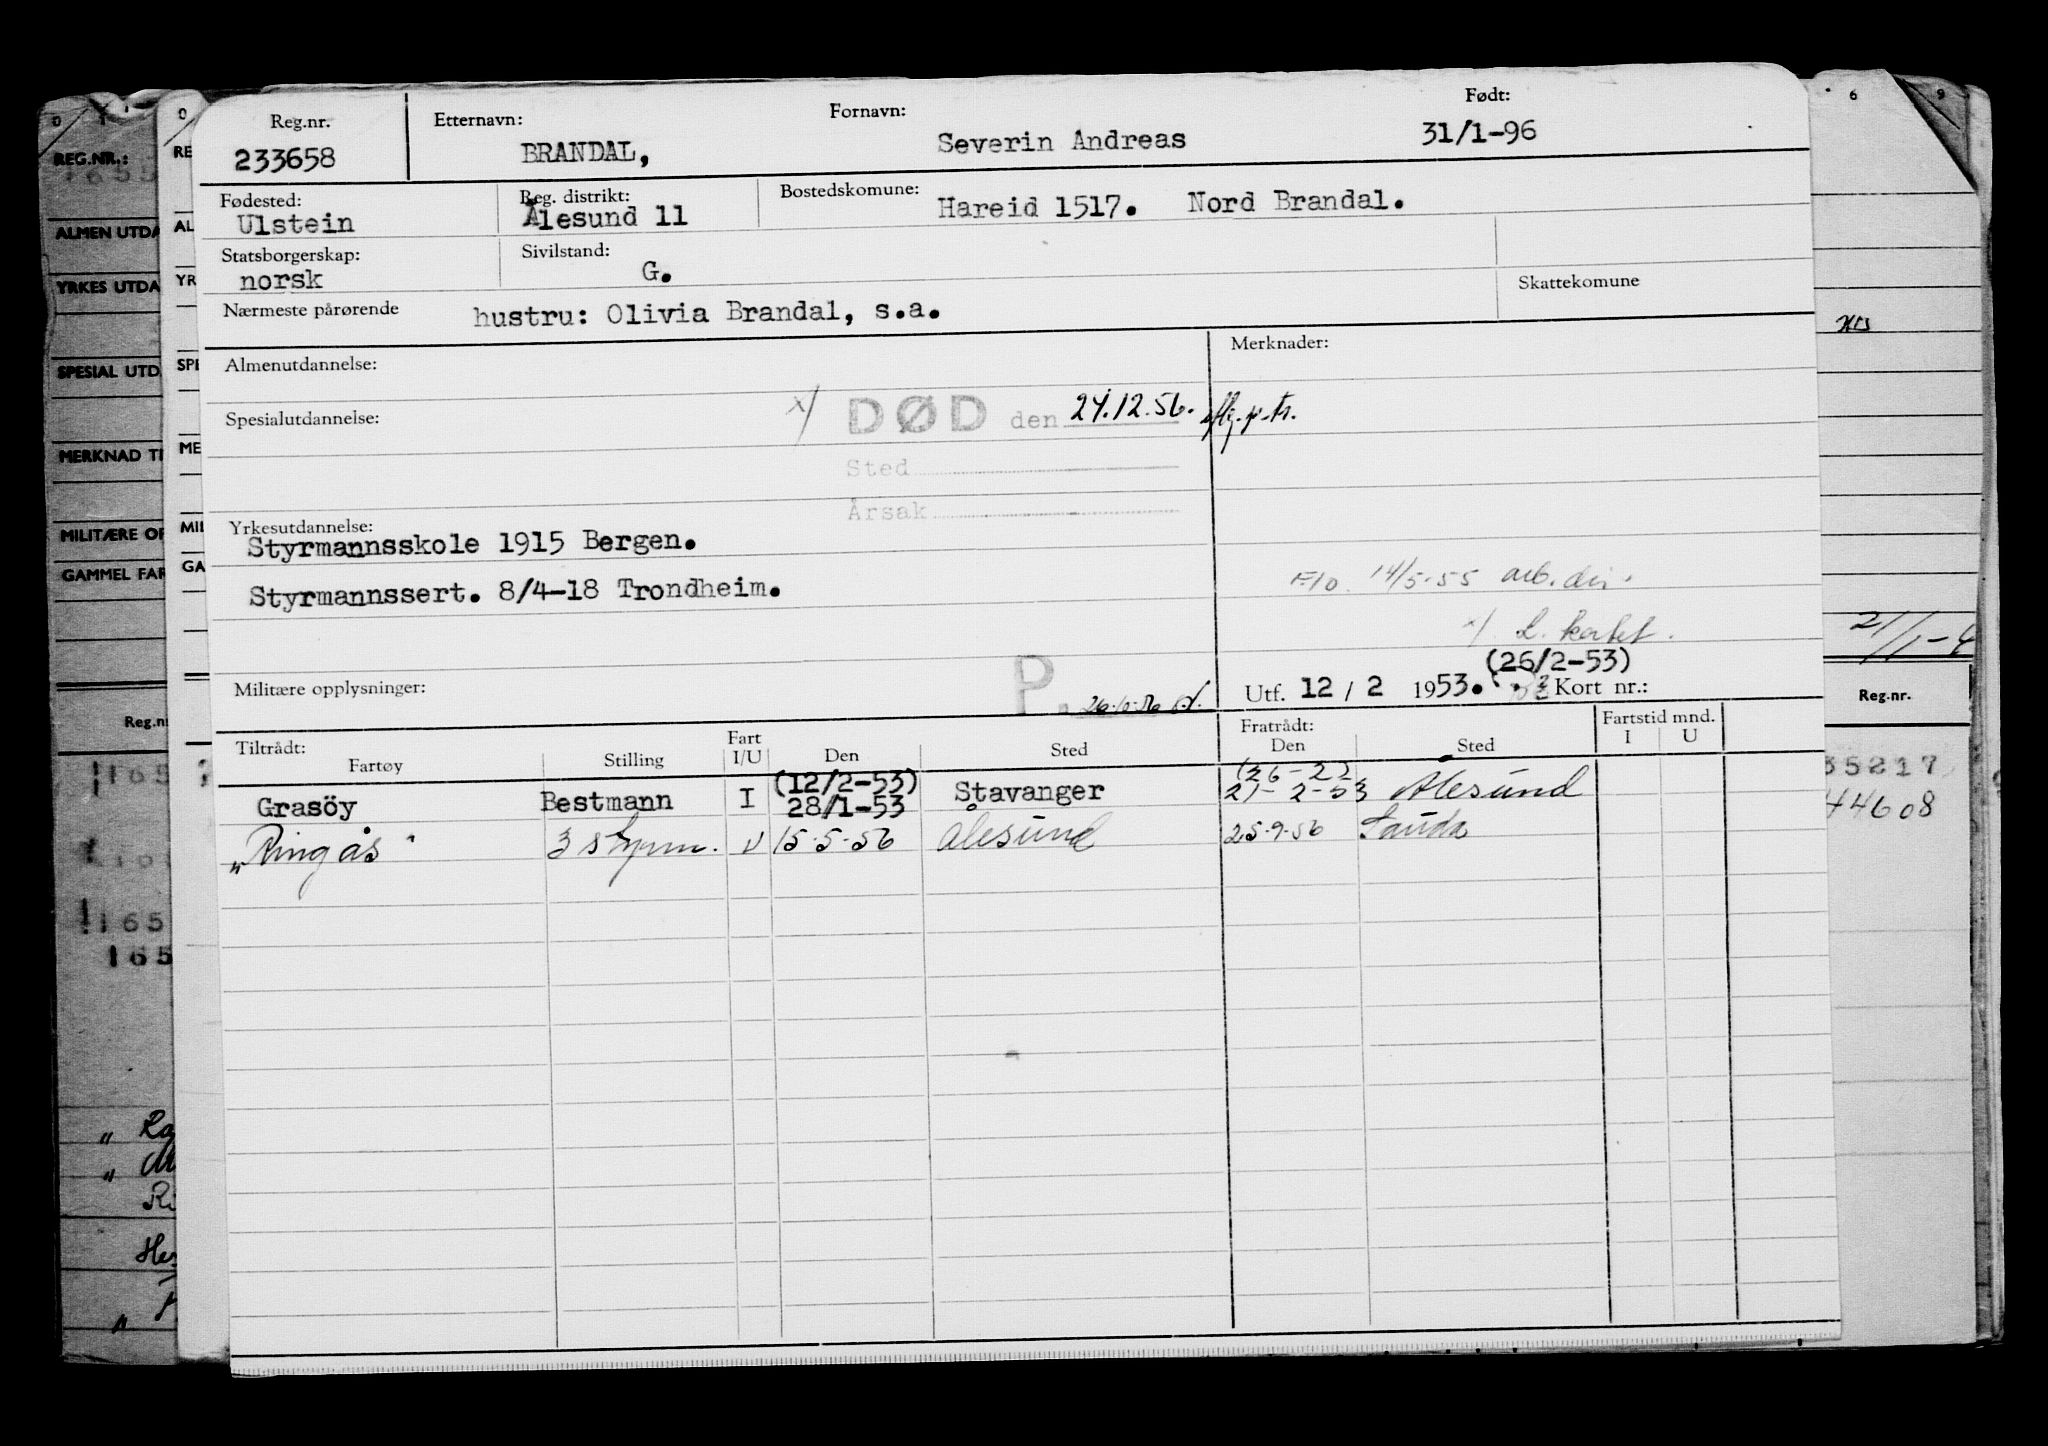 Reg.nr. Etternavn: Fornavn: Født:
233658 BRANDAL, Severin Andreas 31/1-96
Fødested: Reg. distrikt: Bostedskomune:
Ulstein Ålesund 11 Hareid 1517. Nord Brandal.
Statsborgerskap: Sivilstand:
norsk G.
Nærmeste pårørende hustru: Olivia Brandal, s.a. Skattekomune
Almenutdannelse: Merknader:
Spesialutdannelse: x/ DØD den 24.12.56.
Sted
Årsak
Yrkesutdannelse:
Styrmannsskole 1915 Bergen.
Styrmannssert. 8/4-18 Trondheim.
14/5-55 arb. dir.
x/
(26/2-53)
Militære opplysninger: P. 26.10.56 Utf. 12 / 2 1953. Kort nr.:
Tiltrådt: Fratrådt: Fartstid mnd.
Fartøy Stilling Fart I/U Den Sted Den Sted I U
(12/2-53) (26-2
Grasöy Bestmann I 28/1-53 Stavanger 21-2-53 Ålesund
"Ringås" 3 styrm. U 15-5-56 Ålesund 25-9-56 Sauda
REG.NR.:
ALMEN UTDA
YRKES UTDA
SPESIAL UTD.
MERKNAD TI
MILITÆRE OP
GAMMEL FAR
Reg.n
165
165
165
RE
AL
YR
SPE
ME
MIL
GA
6 9
21/1-4
Reg.nr.
35217
44608